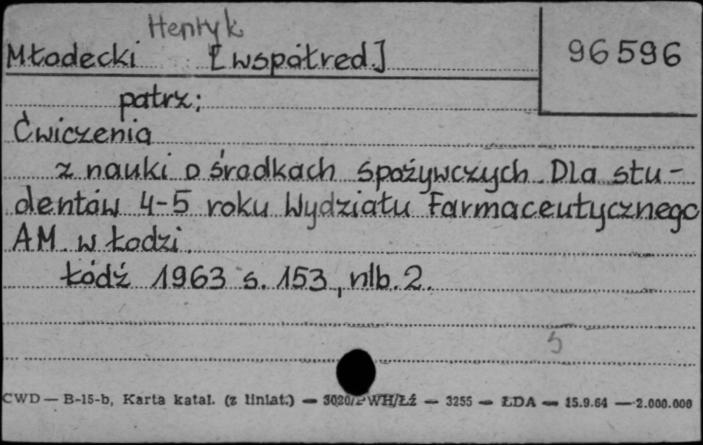 Henryk
Młodecki [współred.] 96596
patrz:
Ćwiczenia
z nauki o środkach spożywczych. Dla stu-
dentów 4-5 roku Wydziału Farmaceutycznego
AM w Łodzi.
Łódź 1963 s. 153, nlb. 2.
5
CWD — B-15-b, Karta katal. (z liniat.) — 3020/PWH/Łź — 3255 — ŁDA — 15.9.64 — 2.000.000